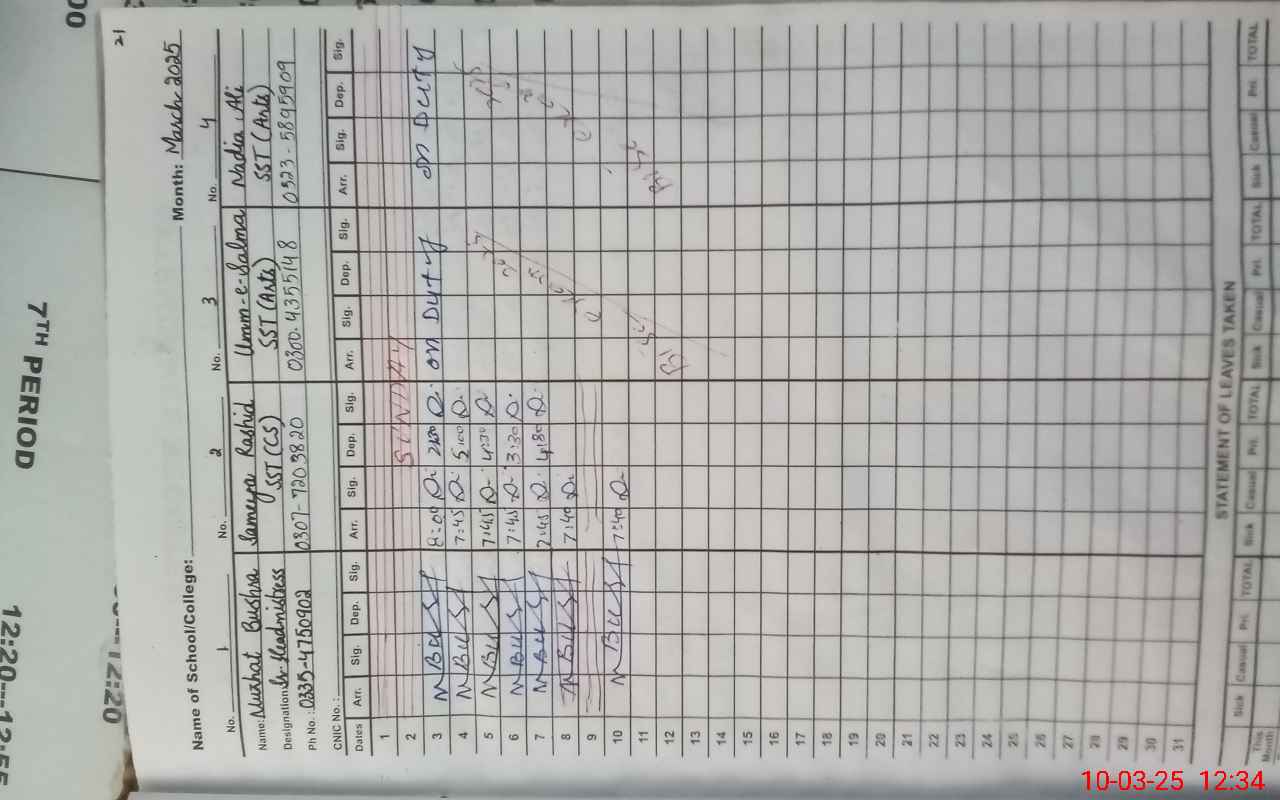 21
Name of School/College: Month: March 2025
No. 1 No. 2 No. 3 No. 4
Name: Nuzhat Bushra Sameera Rashid Umm-e-Salma Nadia Ali
Designation: Sr. Headmistress SST (CS) SST (Arts) SST (Arts)
Ph No.: 0335-4750902 0307-7203820 0300-4355148 0323-5895909
CNIC No.:
Dates Arr. Sig. Dep. Sig. Arr. Sig. Dep. Sig. Arr. Sig. Dep. Sig. Arr. Sig. Dep. Sig.
1
2 SUNDAY
3 8:00 2:30 on Duty on Duty
4 7:45 5:00
5 7:45 4:30
6 7:45 3:30
7 7:45 4:80
8 7:40
9
10 7:40
11
12
13
14
15
16
17
18
19
20
21
22
23
24
25
26
27
28
29
30
31
STATEMENT OF LEAVES TAKEN
Sick Casual Pri. TOTAL Sick Casual Pri. TOTAL Sick Casual Pri. TOTAL Sick Casual Pri. TOTAL
This Month
7TH PERIOD
12:20---12:55
12:20
00
10-03-25 12:34